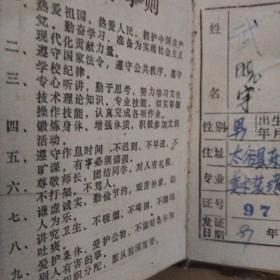 则
一、热爱祖国，热爱人民，拥护中国共产
党，勤奋学习，准备为实现社会主义
现代化贡献力量。
二、遵守国家法令，遵守公共秩序，遵守
学校纪律。
三、专心听讲，勤于思考，努力学习文化
技术理论知识，专业技能，切实掌握
操作技能，认真完成各项作业。
四、锻炼身体，增强体质，积极参加文娱
活动。
五、遵守作息时间，不迟到，不早退，不
旷课，有事必须请假。
六、尊敬师长，团结同学，对人有礼貌，
不打架，不骂人。
七、谦虚诚实，勤俭节约，艰苦朴素，助
人为乐。
八、讲究卫生，不吸烟，不喝酒，不随地
吐痰。
九、爱护集体，爱护公物，不做对集体和
别人有害的事。
服从祖国需要。
姓
名
性别 男 出生
年月
住址 太谷县
专业
证号 97
发证
日期 87年